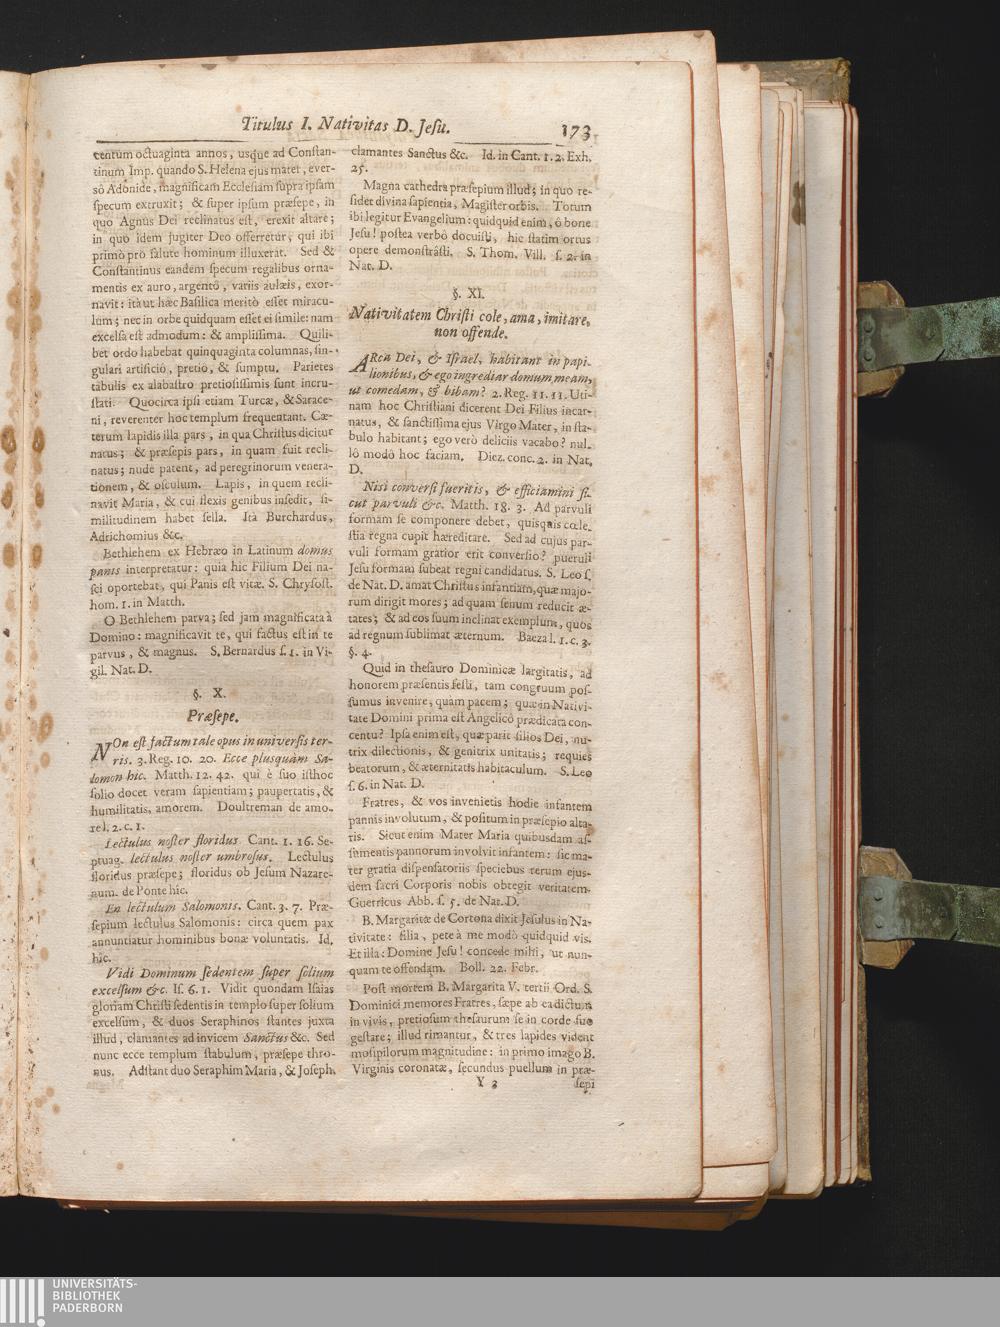 Titulus I. Nativitas D. Jesu. 173
centum octuaginta annos, usque ad Constan-
tinum Imp. quando S. Helena ejus mater, ever-
sô Adonide, magnificam Ecclesiam supra ipsam
specum extruxit; & super ipsum præsepe, in
quo Agnus Dei reclinatus est, erexit altare;
in quo idem jugiter Deo offerretur, qui ibi
primò pro salute hominum illuxerat. Sed &
Constantinus eandem specum regalibus orna-
mentis ex auro, argentô, variis aulæis, exor-
navit: ità ut hæc Basilica meritò esset miracu-
lum; nec in orbe quidquam esset ei simile: nam
excelsa est admodum: & amplissima. Quili-
bet ordo habebat quinquaginta columnas, sin-
gulari artificiô, pretio, & sumptu. Parietes
tabulis ex alabastro pretiosissimis sunt incru-
stati. Quocirca ipsi etiam Turcæ, & Sarace-
ni, reverenter hoc templum frequentant. Cæ-
terum lapidis illa pars, in qua Christus dicitur
natus; & præsepis pars, in quam fuit recli-
natus; nude patent, ad peregrinorum venera-
tionem, & osculum. Lapis, in quem recli-
navit Maria, & cui flexis genibus insedit, si-
militudinem habet sella. Ità Burchardus,
Adrichomius &c.
Bethlehem ex Hebræo in Latinum domus
panis interpretatur: quia hic Filium Dei na-
sci oportebat, qui Panis est vitæ. S. Chrysost.
hom. 1. in Matth.
O Bethlehem parva; sed jam magnificata à
Domino: magnificavit te, qui factus est in te
parvus, & magnus. S. Bernardus s. 1. in Vi-
gil. Nat. D.
§. X.
Præsepe.
NOn est factum tale opus in universis ter-
ris. 3. Reg. 10. 20. Ecce plusquàm Sa-
lomon hic. Matth. 12. 42. qui è suo isthoc
solio docet veram sapientiam; paupertatis, &
humilitatis, amorem. Doultreman de amo-
re l. 2. c. 1.
Lectulus noster floridus Cant. 1. 16. Se-
ptuag. lectulus noster umbrosus. Lectulus
floridus præsepe; floridus ob Jesum Nazare-
num. de Ponte hic.
En lectulum Salomonis. Cant. 3. 7. Præ-
sepium lectulus Salomonis: circa quem pax
annuntiatur hominibus bonæ voluntatis. Id.
hic.
Vidi Dominum sedentem super solium
excelsum &c. Is. 6. 1. Vidit quondam Isaias
gloriam Christi sedentis in templo super solium
excelsum, & duos Seraphinos stantes juxta
illud, clamantes ad invicem Sanctus &c. Sed
nunc ecce templum stabulum, præsepe thro-
nus. Adstant duo Seraphim Maria, & Joseph,
clamantes Sanctus &c. Id. in Cant. 1. 2. Exh.
25.
Magna cathedra præsepium illud; in quo re-
sidet divina sapientia, Magister orbis. Totum
ibi legitur Evangelium: quidquid enim, ô bone
Jesu! postea verbô docuisti, hic statim ortus
opere demonstrâsti. S. Thom. Vill. s. 2. in
Nat. D.
§. XI.
Nativitatem Christi cole, ama, imitare,
non offende.
ARca Dei, & Israel, habitant in papi-
lionibus, & ego ingrediar domum meam,
ut comedam, & bibam? 2. Reg. 11. 11. Uti-
nam hoc Christiani dicerent Dei Filius incar-
natus, & sanctissima ejus Virgo Mater, in sta-
bulo habitant; ego verò deliciis vacabo? nul-
lô modô hoc faciam. Diez. conc. 2. in Nat.
D.
Nisi conversi fueritis, & efficiamini si-
cut parvuli &c. Matth. 18. 3. Ad parvuli
formam se componere debet, quisquis cœle-
stia regna cupit hæreditare. Sed ad cujus par-
vuli formam gratior erit conversio? pueruli
Jesu formam subeat regni candidatus. S. Leo s.
de Nat. D. amat Christus infantiam, quæ majo-
rum dirigit mores; ad quam senum reducit æ-
tates; & ad eos suum inclinat exemplum, quos
ad regnum sublimat æternum. Baeza l. 1. c. 3.
§. 4.
Quid in thesauro Dominicæ largitatis, ad
honorem præsentis festi, tam congruum pos-
sumus invenire, quàm pacem; quæ in Nativi-
tate Domini prima est Angelicô prædicata con-
centu? Ipsa enim est, quæ parit filios Dei, nu-
trix dilectionis, & genitrix unitatis; requies
beatorum, & æternitatis habitaculum. S. Leo
s. 6. in Nat. D.
Fratres, & vos invenietis hodie infantem
pannis involutum, & positum in præsepio alta-
ris. Sicut enim Mater Maria quibusdam as-
sumentis pannorum involvit infantem: sic ma-
ter gratia dispensatoriis speciebus rerum ejus-
dem sacri Corporis nobis obtegit veritatem.
Guerricus Abb. s. 5. de Nat. D.
B. Margaritæ de Cortona dixit Jesulus in Na-
tivitate: filia, pete à me modò quidquid vis.
Et illa: Domine Jesu! concede mihi, ut nun-
quam te offendam. Boll. 22. Febr.
Post mortem B. Margarita V. tertii Ord. S.
Dominici memores Fratres, sæpe ab ea dictum
in vivis, pretiosum thesaurum se in corde suo
gestare; illud rimantur, & tres lapides vident
mosipilorum magnitudine: in primo imago B.
Virginis coronatæ, secundus puellum in præ-
Y 3 sepi
UNIVERSITÄTS-
BIBLIOTHEK
PADERBORN